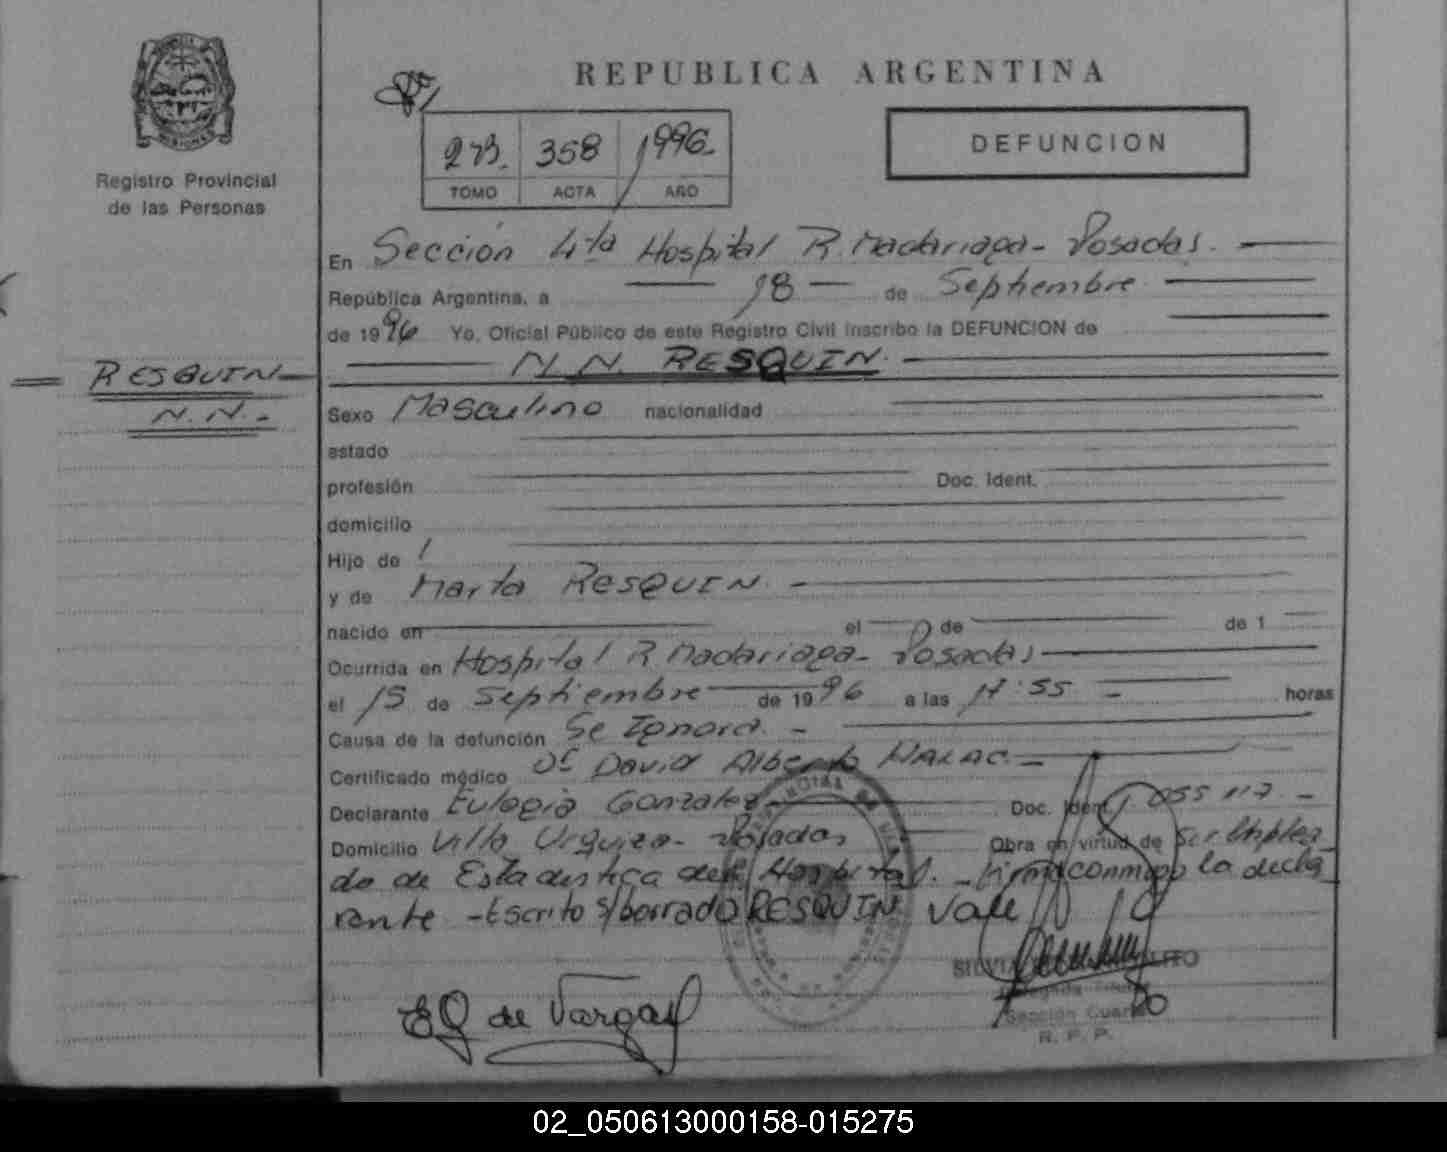 REPUBLICA ARGENTINA
273. 358 1996.
TOMO ACTA AÑO
DEFUNCION
Registro Provincial
de las Personas
En Sección 4ta Hospital R. Madariaga - Posadas.
República Argentina, a 18 de Septiembre
de 1996 Yo, Oficial Público de este Registro Civil inscribo la DEFUNCION de
N.N. RESQUIN.
RESQUIN
N.N.-
Sexo Masculino nacionalidad
estado
profesión Doc. Ident.
domicilio
Hijo de
y de Marta RESQUIN.
nacido en el de de 1
Ocurrida en Hospital R Madariaga - Posadas
el 15 de Septiembre de 1996 a las 17:55 horas
Causa de la defunción Se Ignora. -
Certificado médico Dr David Alberto
Declarante Eulogia Gonzalez Doc. Ident.
Domicilio Villa Urquiza - Posadas Obra en virtud de Ser Emplea
do de Estadistica del Hospital. - Firma conmigo la decla
rante - Escrito s/borrado RESQUIN Vale
SILVIA
EG de Vargas
Sección Cuarta
R. P. P.
02_050613000158-015275